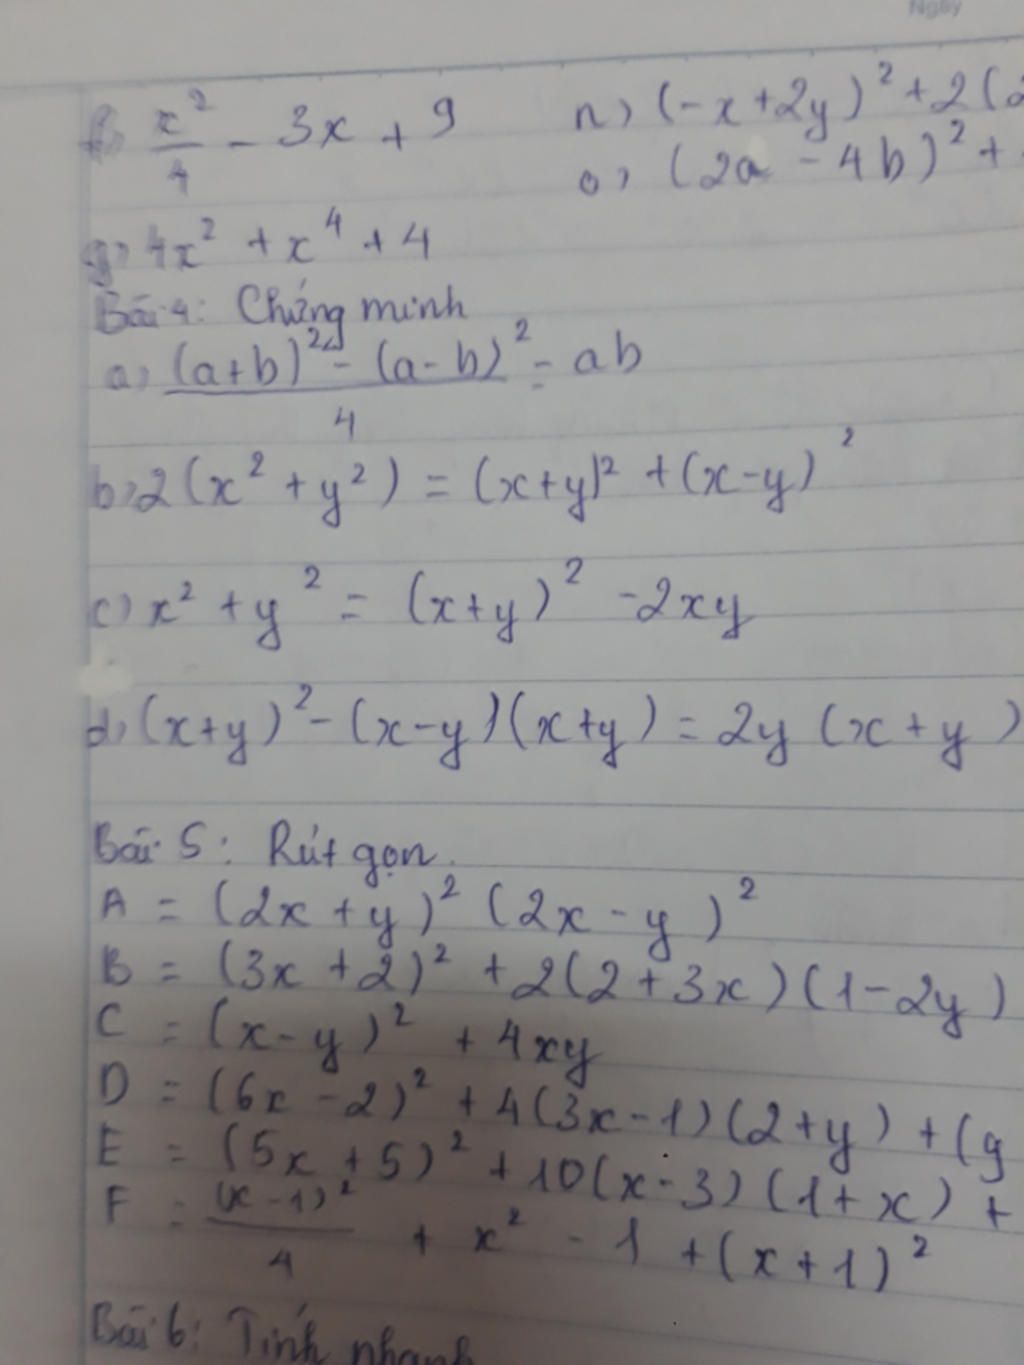 Ngày
f) x²/4 - 3x + 9 n) (-x+2y)² + 2(2
o) (2a - 4b)² +
g) 4x² + x⁴ + 4
Bài 4: Chứng minh
a) ((a+b)² - (a-b)²)/4 = ab
b) 2(x² + y²) = (x+y)² + (x-y)²
c) x² + y² = (x+y)² - 2xy
d) (x+y)² - (x-y)(x+y) = 2y (x+y)
Bài 5: Rút gọn.
A = (2x + y)² (2x - y)²
B = (3x + 2)² + 2(2+3x)(1-2y)
C = (x-y)² + 4xy
D = (6x - 2)² + 4(3x-1)(2+y) + (y
E = (5x + 5)² + 10(x-3)(1+x) +
F = (x-1)²/4 + x² - 1 + (x+1)²
Bài 6: Tính nhanh